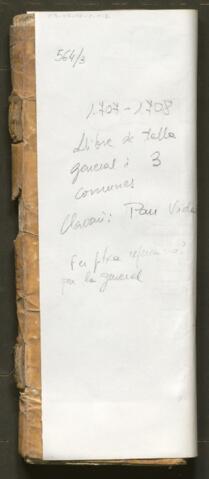 564/3
1707-1708
Llibre de talla
general i 3
comunes
Clavari: Pau Vida
Fer fitxa
per la general